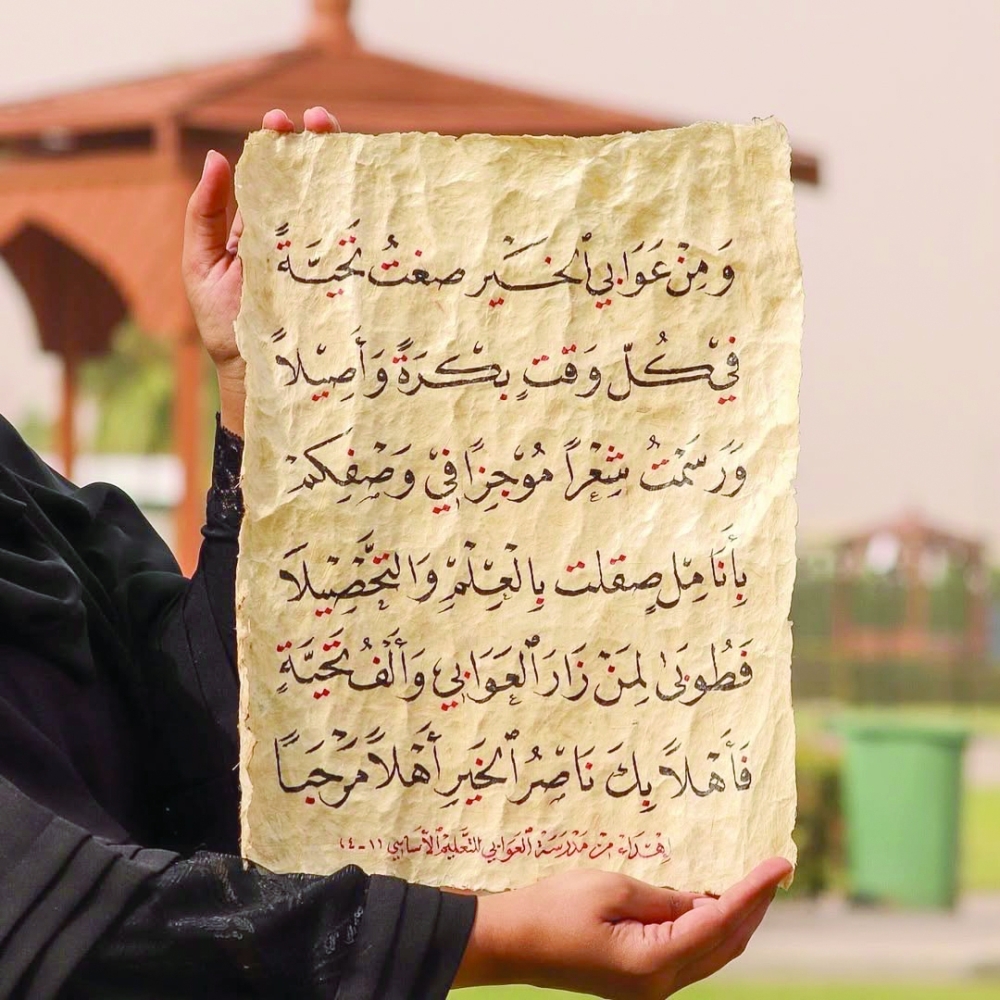 وَمِنْ عَوَابي ٱلخَيْرِ صغتُ تَحِيَّةً
فِيْ كُلّ وَقتٍ بكْرَةً وَأَصِيْلاً
وَرَسَمْتُ شِعْراً مُوْجِزاً فِيْ وَصْفِكمْ
بِأَنَامِلٍ صقلت بِالْعِلْمِ وَالتَّحْصِيْلَا
فَطُوبَىٰ لِمَنْ زَارَ ٱلعَوَابِي وَأَلْفُ تَحِيَّةٍ
فَأَهْلاً بِكَ نَاصِرُ ٱلخَيرِ أَهْلاً مَرْحَبَاً
إهْدَاء مِنْ مَدْرَسَة ٱلعَوَابِي للتَّعْلِيمِ ٱلأَسَاسِي (١-٤)